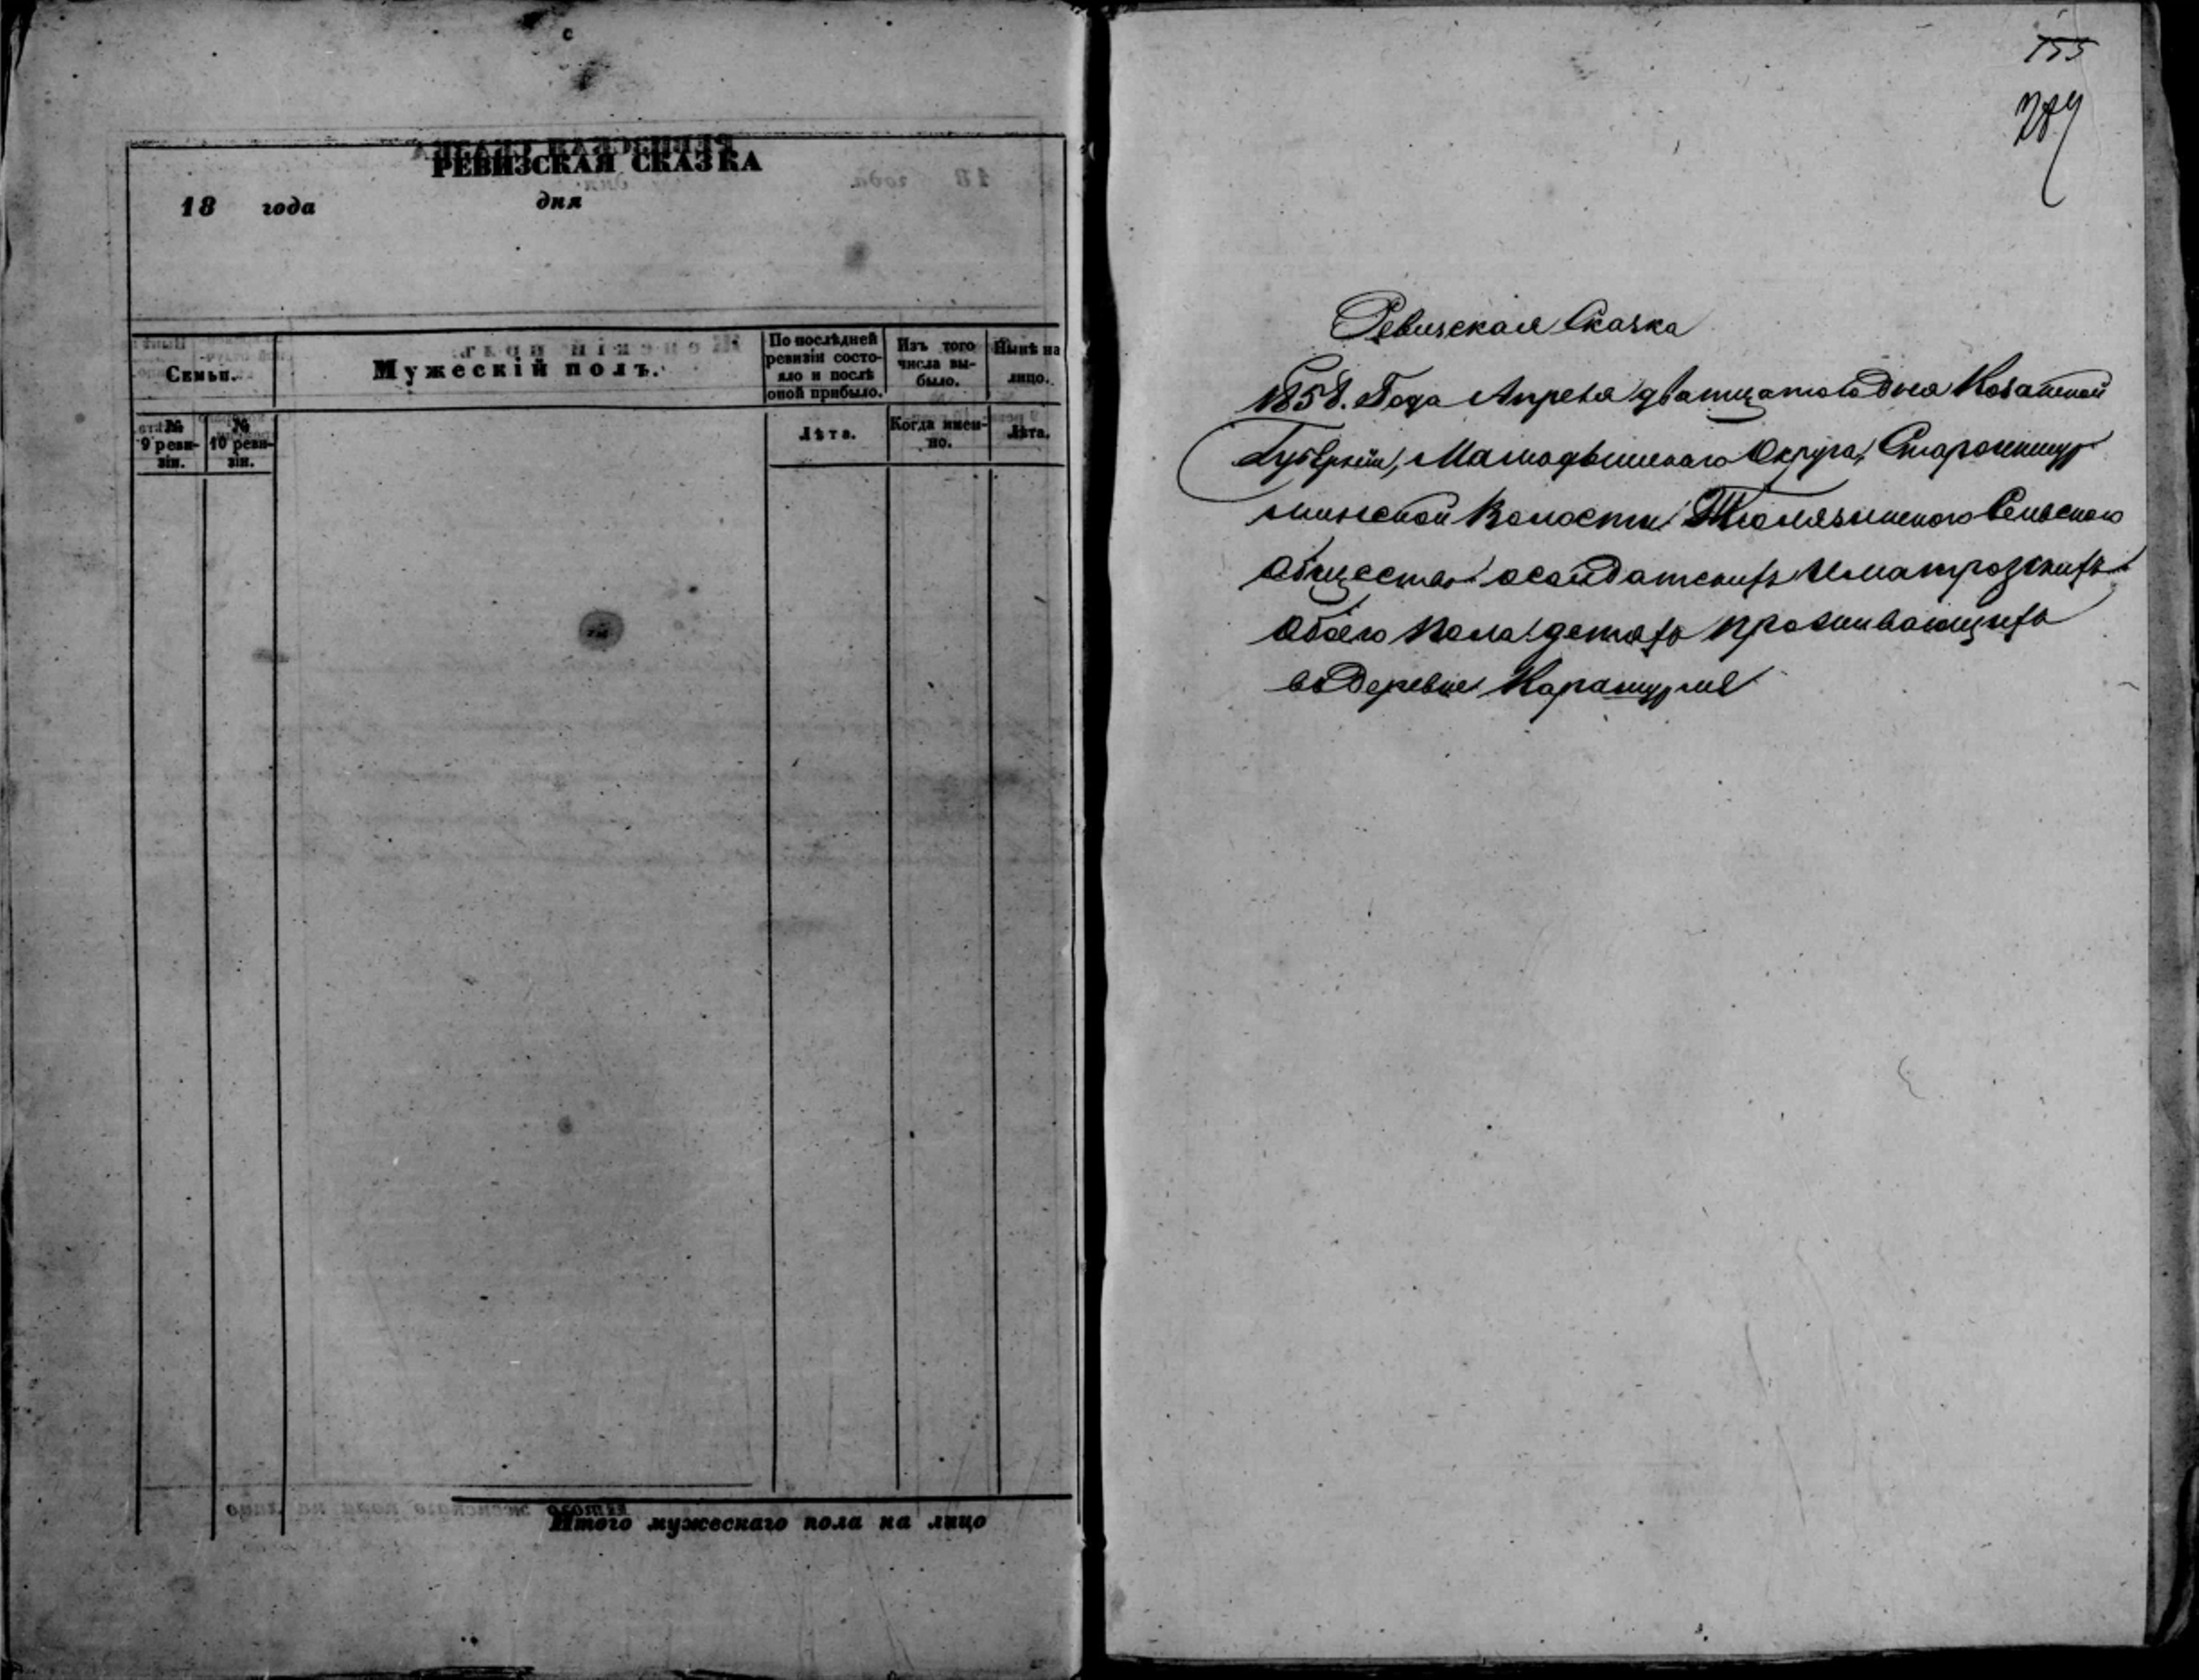 РЕВИЗСКАЯ СКАЗКА
18 года дня
Семьи.
Мужескій полъ.
По послѣдней ревизіи состояло и послѣ оной прибыло.
Изъ того числа выбыло.
Нынѣ на лицо.
№ 9 ревизіи.
№ 10 ревизіи.
Лѣта.
Когда именно.
Лѣта.
Итого мужескаго пола на лицо
155
Ревизская Сказка
1858. Года Апреля дватцатого дня Казанской
Губерніи, Мамадышскаго Округа,
Волости Тюлязинского Сельского
Общества осолдатскихъ иматрозскихъ
обоего пола детяхъ проживающихъ
въ Деревне